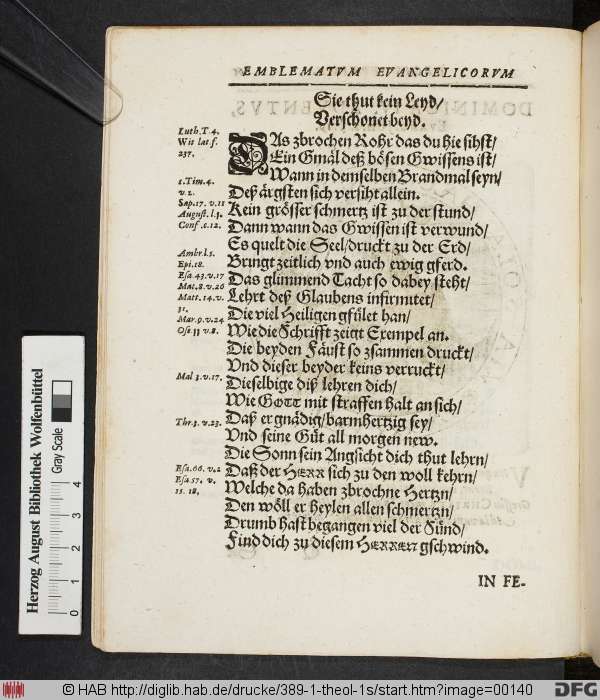 EMBLEMATVM EVANGELICORVM
Sie thut kein Leyd/
Verschonet beyd.
Luth. T. 4.
Wit lat. f.
237.
DAs zbrochen Rohr das du hie sihst/
Ein Gmäl deß bösen Gwissens ist/
Wann in demselben Brandmal seyn/
1. Tim. 4.
v. 2.
Deß ärgsten sich versiht allein.
Sap. 17. v. 11
Kein grösser schmertz ist zu der stund/
August. l. 3.
Conf. c. 12.
Dann wann das Gwissen ist verwund/
Es quelt die Seel/ druckt zu der Erd/
Ambr. l. 5.
Epi. 18.
Bringt zeitlich vnd auch ewig gferd.
Esa. 43. v. 17
Das glimmend Tacht so dabey steht/
Mat. 8. v. 26
Matt. 14. v.
31.
Lehrt deß Glaubens infirmitet/
Die viel Heiligen gfület han/
Mar. 9. v. 24
Ose 11 v. 8.
Wie die Schrifft zeigt Exempel an.
Die beyden Fäust so zsammen druckt/
Vnd dieser beyder keins verruckt/
Mal 3. v. 17.
Dieselbige diß lehren dich/
Wie GOTT mit straffen halt an sich/
Thr. 3. v. 23.
Daß er gnädig/ barmhertzig sey/
Vnd seine Güt all morgen new.
Die Sonn sein Angsicht dich thut lehrn/
Esa. 66. v. 2
Daß der HERR sich zu den woll kehrn/
Esa. 57. v.
15. 18.
Welche da haben zbrochne Hertzn/
Den wöll er heylen allen schmertzn/
Drumb hast begangen viel der Sünd/
Find dich zu diesem HERREN gschwind.
IN FE-
Herzog August Bibliothek Wolfenbüttel
Gray Scale
0 1 2 3 4
© HAB http://diglib.hab.de/drucke/389-1-theol-1s/start.htm?image=00140
DFG